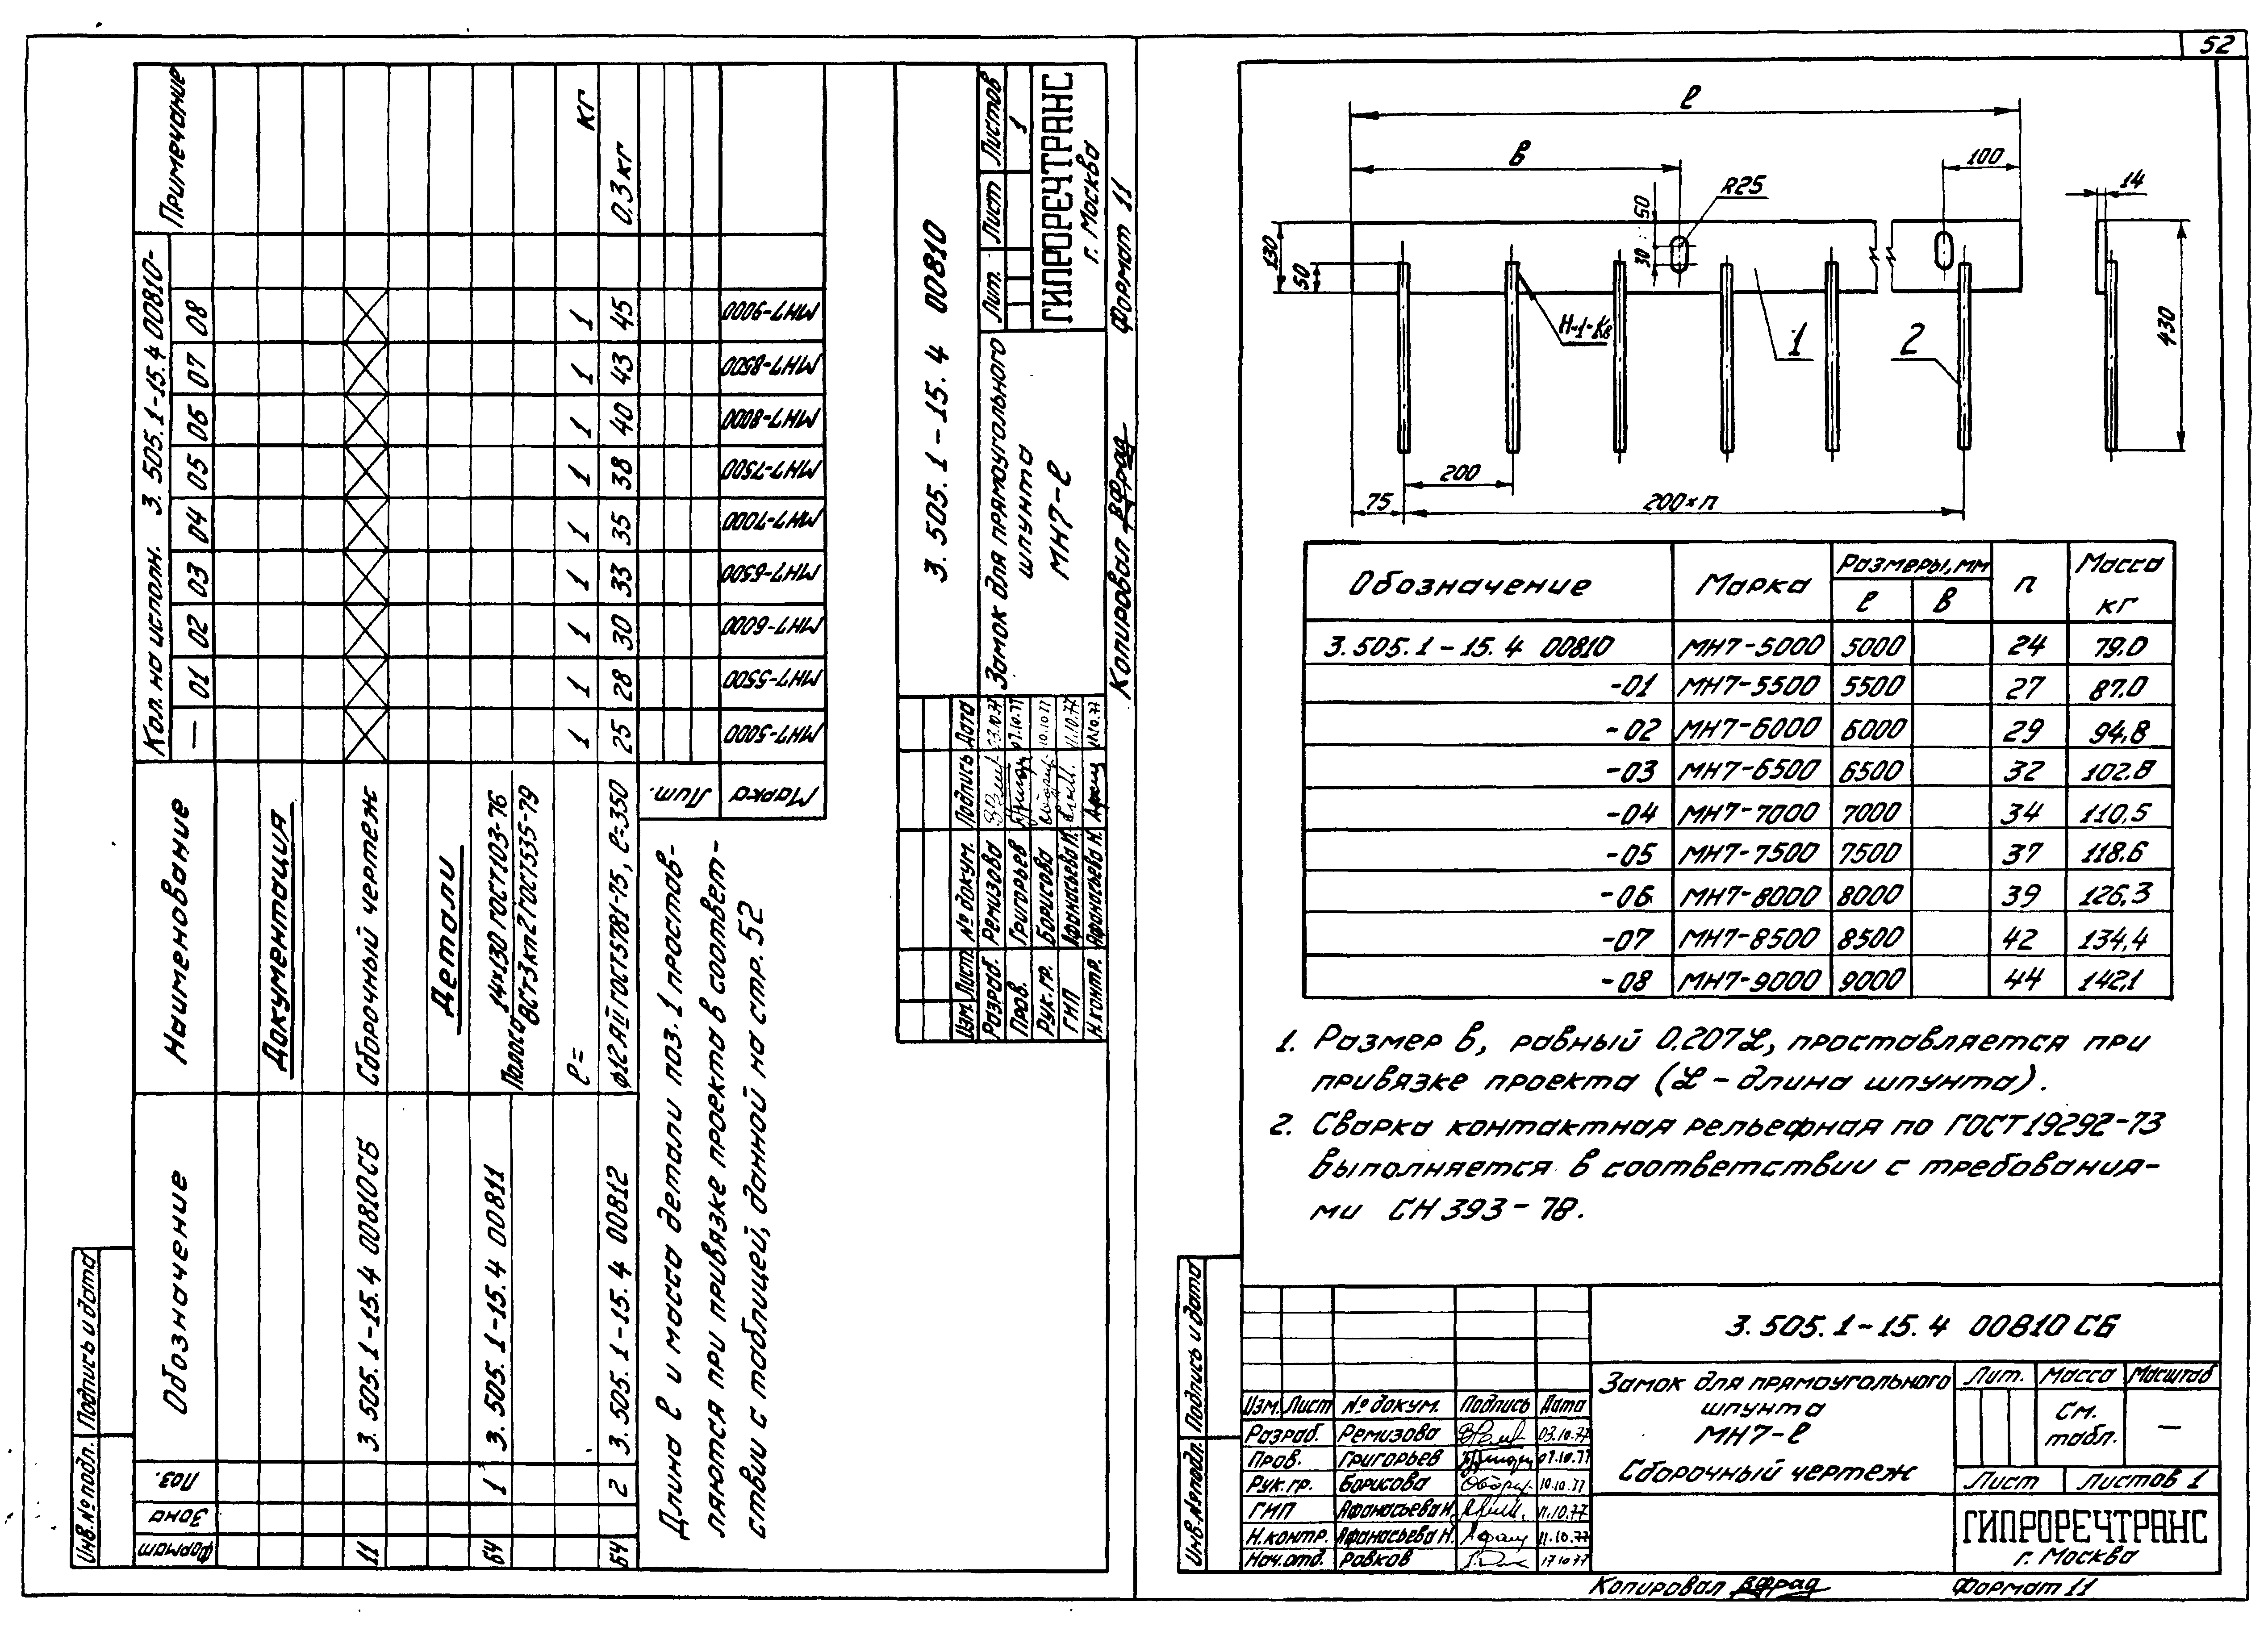 52
Формат
Зона
Поз.
Обозначение
Наименование
Кол. на исполн. 3.505.1-15.4 00810-
— 01 02 03 04 05 06 07 08
Примечание
Документация
11 3.505.1-15.4 00810СБ Сборочный чертеж
Детали
Б4 1 3.505.1-15.4 00811 Полоса 14×130 ГОСТ103-76
ВСт3кп2 ГОСТ535-79
ℓ= 1 1 1 1 1 1 1 1 1 кг
Б4 2 3.505.1-15.4 00812 ϕ12АII ГОСТ5781-75, ℓ=350 25 28 30 33 35 38 40 43 45 0,3 кг
Лит.
Марка МН7-5000 МН7-5500 МН7-6000 МН7-6500 МН7-7000 МН7-7500 МН7-8000 МН7-8500 МН7-9000
Длина ℓ и масса детали поз. 1 простав-
ляются при привязке проекта в соответ-
ствии с таблицей, данной на стр. 52
3.505.1-15.4 00810
Изм. Лист № докум. Подпись Дата
Разраб. Ремизова 03.10.77
Пров. Григорьев 07.10.77
Рук. гр. Борисова 10.10.77
ГИП Афанасьева Н. 11.10.77
Н.контр. Афанасьева Н. 11.10.77
Замок для прямоугольного
шпунта
МН7-ℓ
Лит. Лист Листов
1
ГИПРОРЕЧТРАНС
г. Москва
Копировал Формат 11
Инв.№ подл. Подпись и дата
ℓ
в
100
R25
14
50
30
130
50
Н-1-Кв
1
2
430
200
75
200×п
Обозначение Марка Размеры, мм п Масса
ℓ в кг
3.505.1-15.4 00810 МН7-5000 5000 24 79.0
-01 МН7-5500 5500 27 87.0
-02 МН7-6000 6000 29 94,8
-03 МН7-6500 6500 32 102.8
-04 МН7-7000 7000 34 110,5
-05 МН7-7500 7500 37 118.6
-06 МН7-8000 8000 39 126,3
-07 МН7-8500 8500 42 134,4
-08 МН7-9000 9000 44 142,1
1. Размер в, равный 0.207ℒ, проставляется при
привязке проекта (ℒ - длина шпунта).
2. Сварка контактная рельефная по ГОСТ19292-73
выполняется в соответствии с требования-
ми СН 393-78.
Инв.№ подл. Подпись и дата
3.505.1-15.4 00810 СБ
Изм. Лист № докум. Подпись Дата
Разраб. Ремизова 03.10.77
Пров. Григорьев 07.10.77
Рук.гр. Борисова 10.10.77
ГИП Афанасьева Н. 11.10.77
Н.контр. Афанасьева Н. 11.10.77
Нач.отд. Ровков 17.10.77
Замок для прямоугольного
шпунта
МН7-ℓ
Сборочный чертеж
Лит. Масса Масштаб
См.
табл. —
Лист Листов 1
ГИПРОРЕЧТРАНС
г. Москва
Копировал Формат 11